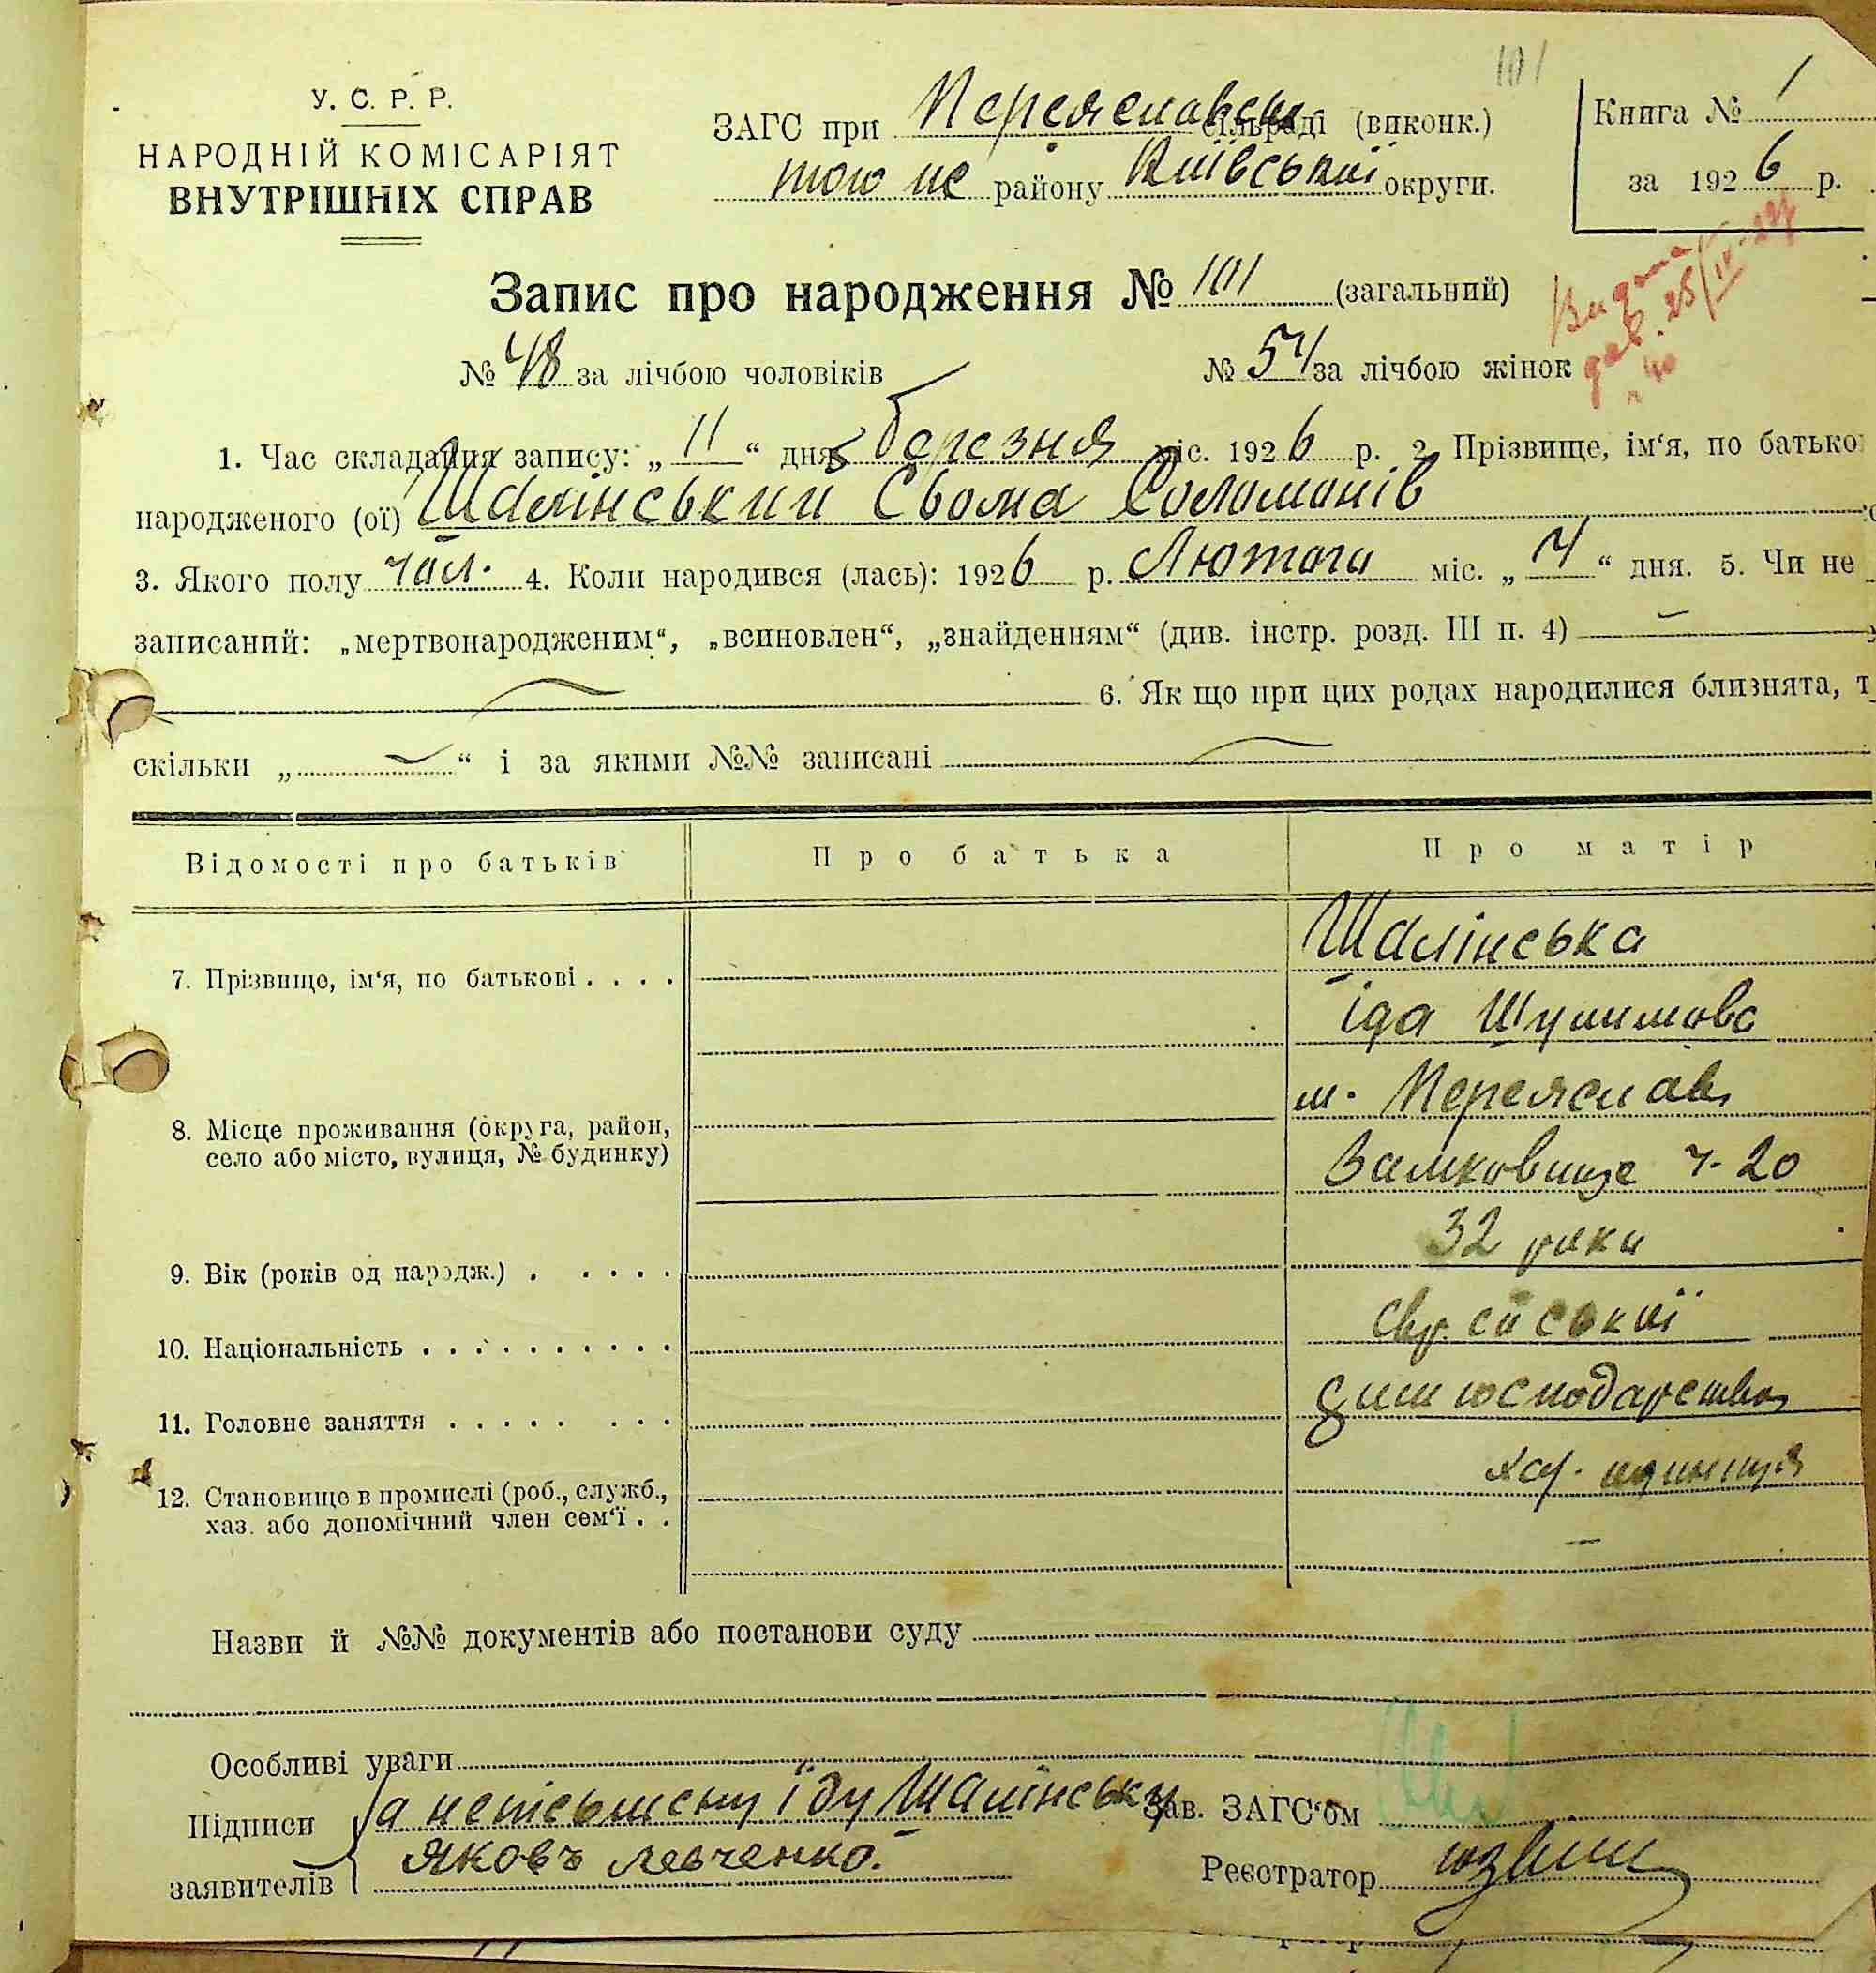 101
У. С. Р. Р.
НАРОДНІЙ КОМІСАРІЯТ
ВНУТРІШНІХ СПРАВ
ЗАГС при Переяславськ сільраді (виконк.)
того же району Київської округи.
Книга № 1
за 1926 р.
Запис про народження № 101 (загальний)
Видана
25/IV
№ 48 за лічбою чоловіків № 54 за лічбою жінок
1. Час складання запису: „11“ дня березня міс. 1926 р. 2. Прізвище, ім‘я, по батько
народженого (ої) Шалінський Сьома Соломонів
3. Якого полу чол. 4. Коли народився (лась): 1926 р. Лютого міс. „4“ дня. 5. Чи не
записаний: „мертвонародженим“, „всиновлен“, „знайденням“ (див. інстр. розд. III п. 4) —
6. Як що при цих родах народилися близнята, т
скільки „—“ і за якими №№ записані
Відомості про батьків Про батька Про матір
7. Прізвище, ім‘я, по батькові . . . . Шалінська
Іда
8. Місце проживання (округа, район, село або місто, вулиця, № будинку) м. Переяслав
Замковище ч. 20
9. Вік (років од народж.) . . . . . 32 роки
10. Національність . . . . . . . . . . Єврейської
11. Головне заняття . . . . . . . . господарство
12. Становище в промислі (роб., служб., хаз. або допомічний член сем‘ї . . одиниця
—
Назви й №№ документів або постанови суду
Особливі уваги
Підписи за неписьменну Іду Шалінську Зав. ЗАГС‘ом
заявителів Яковъ Левченко. Реєстратор